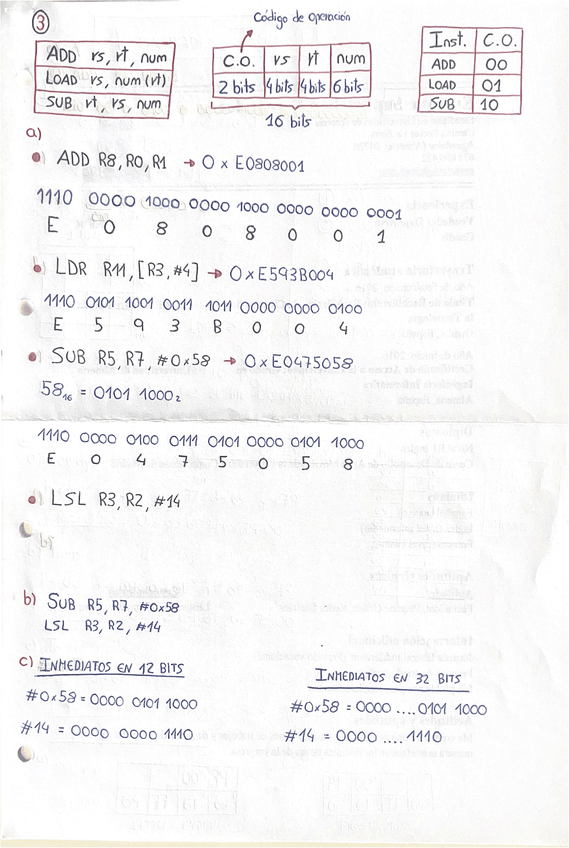 3
Código de operación
ADD rs, rt, num
LOAD rs, num(rt)
SUB rt, rs, num
C.O. rs rt num
2 bits 4 bits 4 bits 6 bits
16 bits
Inst. C.O.
ADD 00
LOAD 01
SUB 10
a)
ADD R8, R0, R1 → 0xE0808001
1110 0000 1000 0000 1000 0000 0000 0001
E 0 8 0 8 0 0 1
LDR R11, [R3, #4] → 0xE593B004
1110 0101 1001 0011 1011 0000 0000 0100
E 5 9 3 B 0 0 4
SUB R5, R7, #0x58 → 0xE0475058
58₁₆ = 0101 1000₂
1110 0000 0100 0111 0101 0000 0101 1000
E 0 4 7 5 0 5 8
LSL R3, R2, #14
b)
b) SUB R5, R7, #0x58
LSL R3, R2, #14
c) INMEDIATOS EN 12 BITS
#0x58 = 0000 0101 1000
#14 = 0000 0000 1110
INMEDIATOS EN 32 BITS
#0x58 = 0000 .... 0101 1000
#14 = 0000 .... 1110